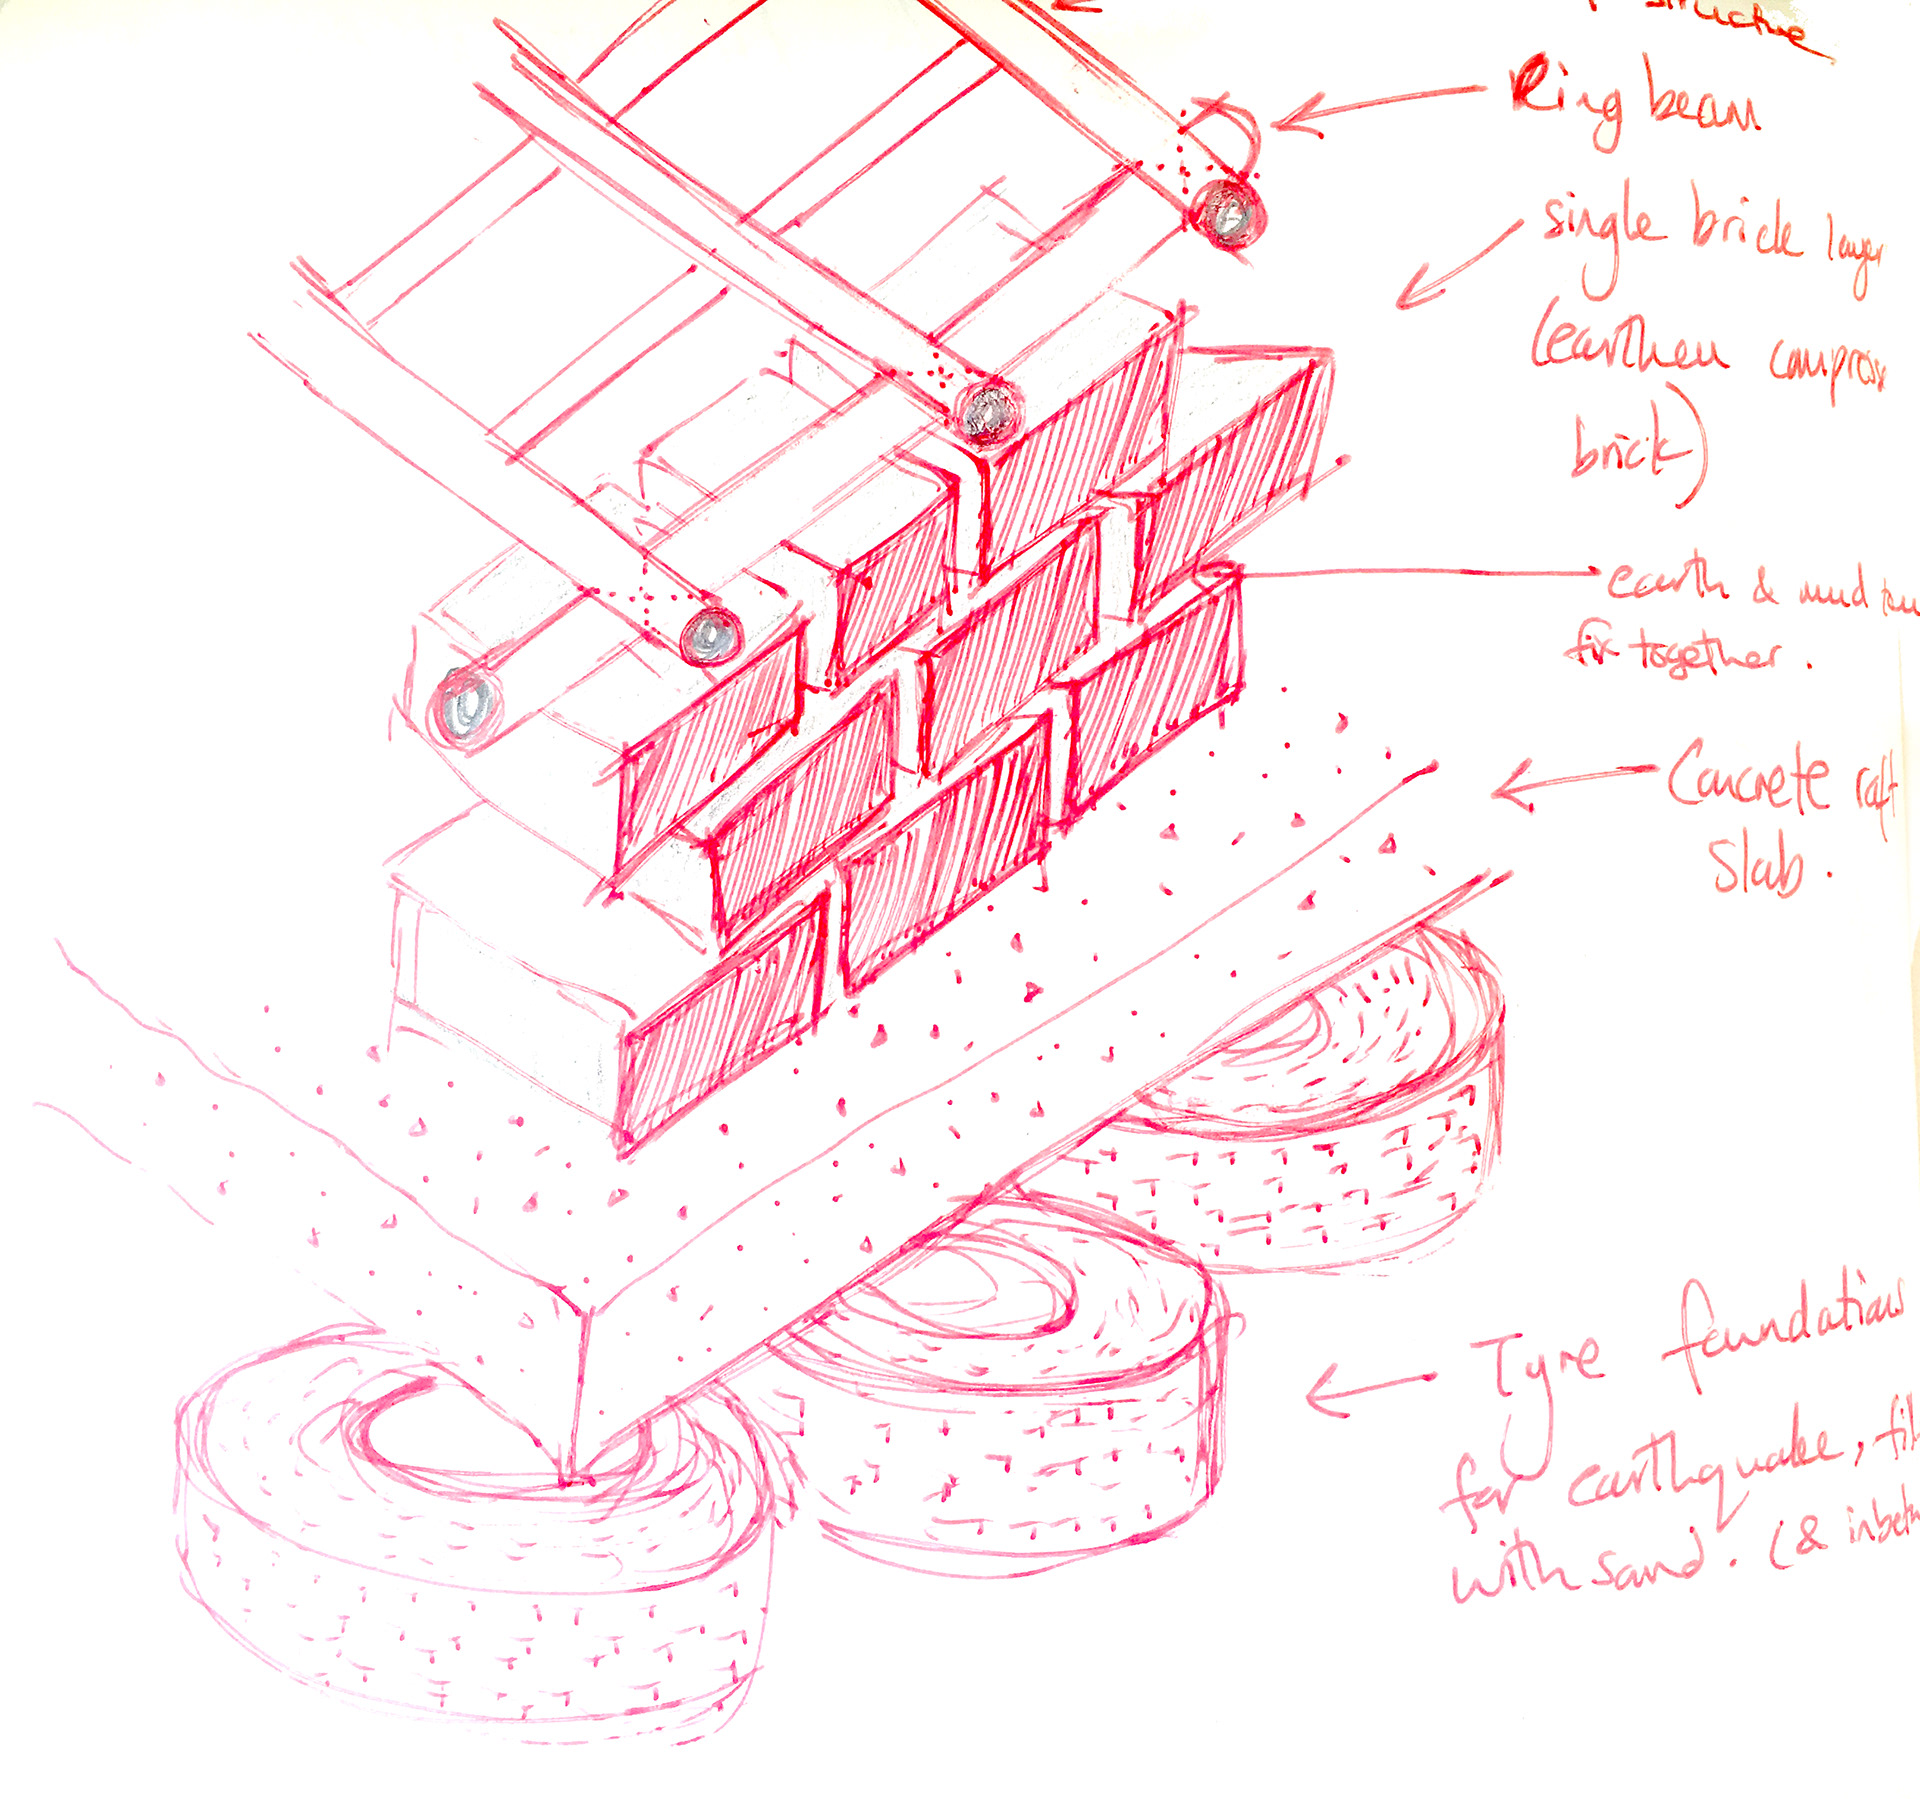 structure
Ring beam
single brick layer
(earthen compress
brick)
earth & mud
fix together.
Concrete raft
Slab.
Tyre foundations
for earthquake, fil
with sand. (& inbetw